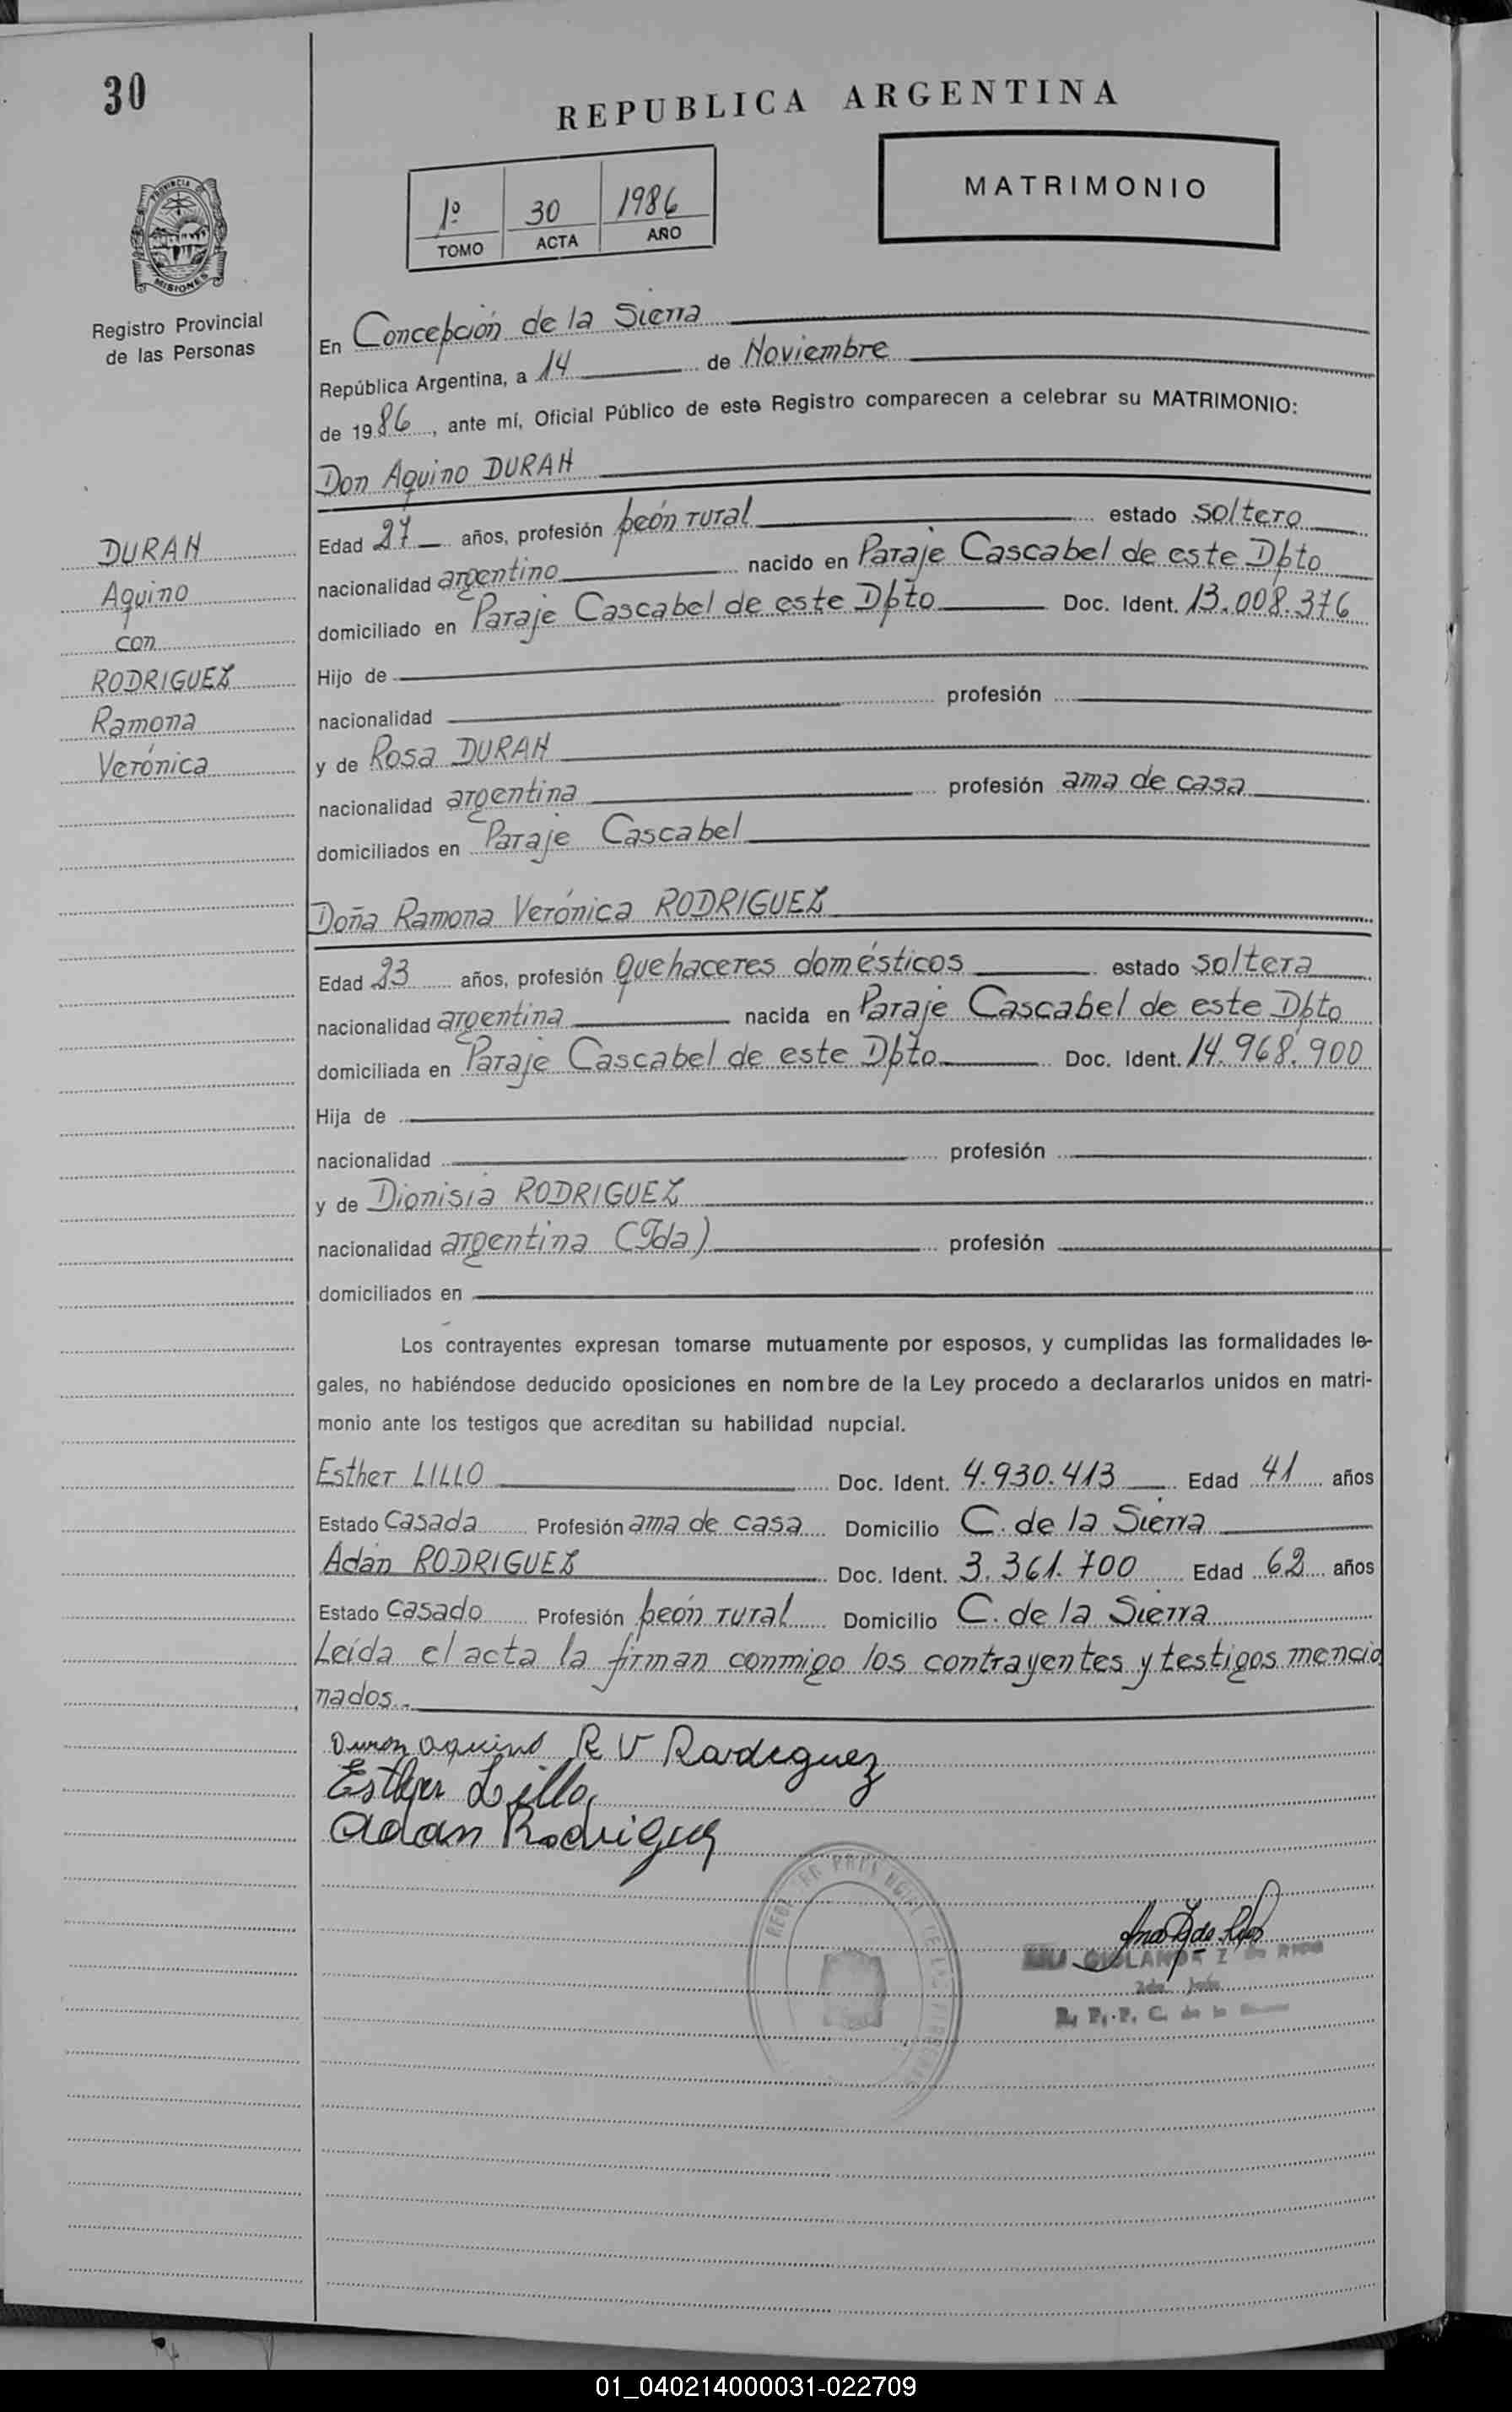 30
REPUBLICA ARGENTINA
MATRIMONIO
1º 30 1986
TOMO ACTA AÑO
PROVINCIA DE
MISIONES
Registro Provincial
de las Personas
En Concepción de la Sierra
República Argentina, a 14 de Noviembre
de 1986, ante mí, Oficial Público de este Registro comparecen a celebrar su MATRIMONIO:
Don Aquino DURAN
DURAN
Aquino
con
RODRIGUEZ
Ramona
Verónica
Edad 27 años, profesión peón rural estado soltero
nacionalidad argentino nacido en Paraje Cascabel de este Dpto
domiciliado en Paraje Cascabel de este Dpto Doc. Ident. 13.008.376
Hijo de
nacionalidad profesión
y de Rosa DURAN
nacionalidad argentina profesión ama de casa
domiciliados en Paraje Cascabel
Doña Ramona Verónica RODRIGUEZ
Edad 23 años, profesión quehaceres domésticos estado soltera
nacionalidad argentina nacida en Paraje Cascabel de este Dpto
domiciliada en Paraje Cascabel de este Dpto Doc. Ident. 14.968.900
Hija de
nacionalidad profesión
y de Dionisia RODRIGUEZ
nacionalidad argentina (Fda) profesión
domiciliados en
Los contrayentes expresan tomarse mutuamente por esposos, y cumplidas las formalidades le-
gales, no habiéndose deducido oposiciones en nombre de la Ley procedo a declararlos unidos en matri-
monio ante los testigos que acreditan su habilidad nupcial.
Esther LILLO Doc. Ident. 4.930.413 Edad 41 años
Estado casada Profesión ama de casa Domicilio C. de la Sierra
Adán RODRIGUEZ Doc. Ident. 3.361.700 Edad 62 años
Estado casado Profesión peón rural Domicilio C. de la Sierra
Leída el acta la firman conmigo los contrayentes y testigos mencio
nados.-
Duran aquino R V Rodriguez
Esther Lillo
Adan Rodriguez
R. P. P. C. de la
01_040214000031-022709